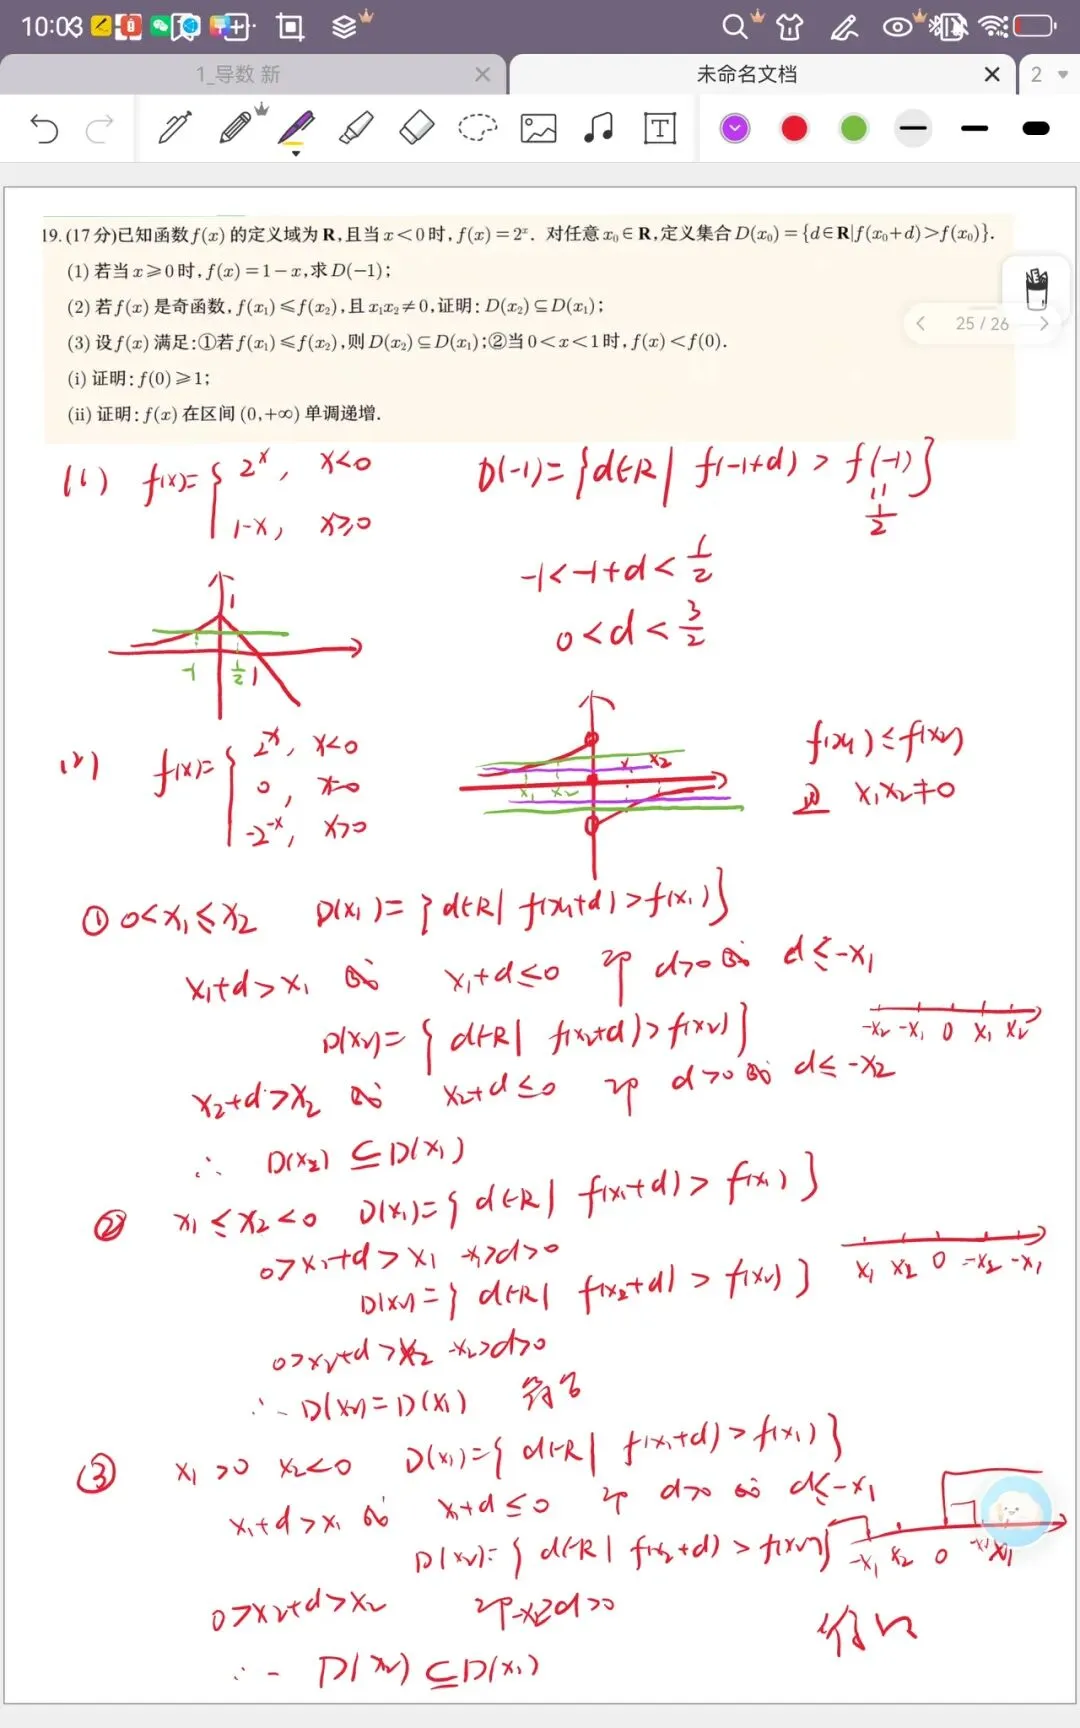 10:03
1_导数 新
未命名文档
2
T
19.(17分)已知函数f(x)的定义域为R,且当x<0时,f(x)=2ˣ. 对任意x₀∈R,定义集合D(x₀)={d∈R|f(x₀+d)>f(x₀)}.
(1)若当x⩾0时,f(x)=1-x,求D(-1);
(2)若f(x)是奇函数,f(x₁)⩽f(x₂),且x₁x₂≠0,证明:D(x₂)⊆D(x₁);
25 / 26
(3)设f(x)满足:①若f(x₁)⩽f(x₂),则D(x₂)⊆D(x₁);②当0<x<1时,f(x)<f(0).
(i)证明:f(0)⩾1;
(ii)证明:f(x)在区间(0,+∞)单调递增.
(1) f(x)={ 2ˣ, x<0
1-x, x≥0
D(-1)={d∈R| f(-1+d)>f(-1)}
1/2
-1<-1+d<1/2
0<d<3/2
1
-1 1/2 1
(2) f(x)={ 2ˣ, x<0
0, x=0
-2⁻ˣ, x>0
x₁ x₂ x₁ x₂
f(x₁)≤f(x₂)
且 x₁x₂≠0
① 0<x₁≤x₂ D(x₁)={d∈R| f(x₁+d)>f(x₁)}
x₁+d>x₁ 或 x₁+d≤0 即 d>0 或 d≤-x₁
D(x₂)={d∈R| f(x₂+d)>f(x₂)}
-x₂ -x₁ 0 x₁ x₂
x₂+d>x₂ 或 x₂+d≤0 即 d>0 或 d≤-x₂
∴ D(x₂)⊆D(x₁)
② x₁≤x₂<0 D(x₁)={d∈R| f(x₁+d)>f(x₁)}
0>x₁+d>x₁ -x₁>d>0
x₁ x₂ 0 -x₂ -x₁
D(x₂)={d∈R| f(x₂+d)>f(x₂)}
0>x₂+d>x₂ -x₂>d>0
∴ D(x₂)=D(x₁)
③ x₁>0 x₂<0 D(x₁)={d∈R| f(x₁+d)>f(x₁)}
x₁+d>x₁ 或 x₁+d≤0 即 d>0 或 d≤-x₁
D(x₂)={d∈R| f(x₂+d)>f(x₂)}
-x₁ x₂ 0 x₁
0>x₂+d>x₂ 即-x₂>d>0
∴ D(x₂)⊆D(x₁)